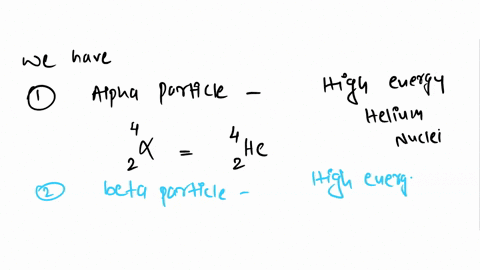 we have
① Alpha particle – High energy
Helium
Nuclei
⁴₂α = ⁴₂He
② beta particle – High energ.